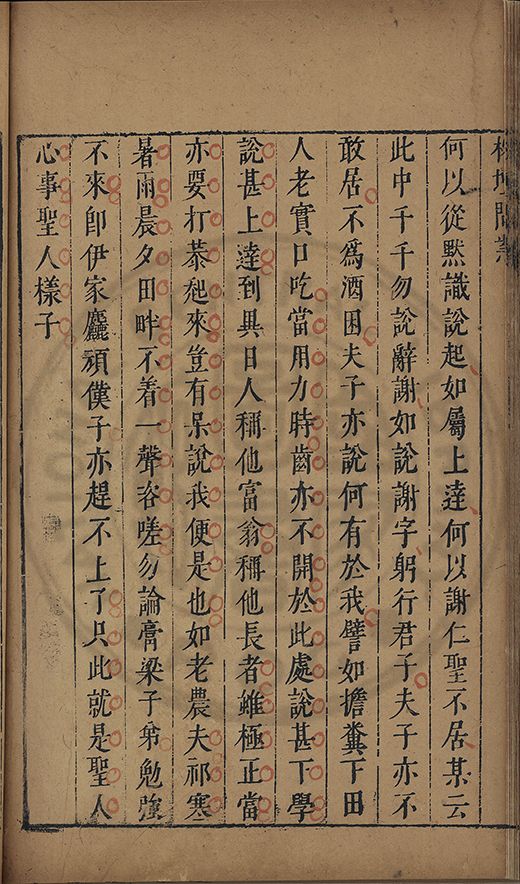 榕壇問業
何以從默識說起如屬上達何以謝仁聖不居某云
此中千千勿說辭謝如說謝字躬行君子夫子亦不
敢居不為酒困夫子亦說何有於我譬如擔糞下田
人老實口吃當用力時齒亦不開於此處說甚下學
說甚上達到異日人稱他富翁稱他長者雖極正當
亦要打恭起來豈有呆說我便是也如老農夫祁寒
暑雨晨夕田畔不着一聲咨嗟勿論膏粱子弟勉強
不來卽伊家麤頑僕子亦趕不上了只此就是聖人
心事聖人樣子